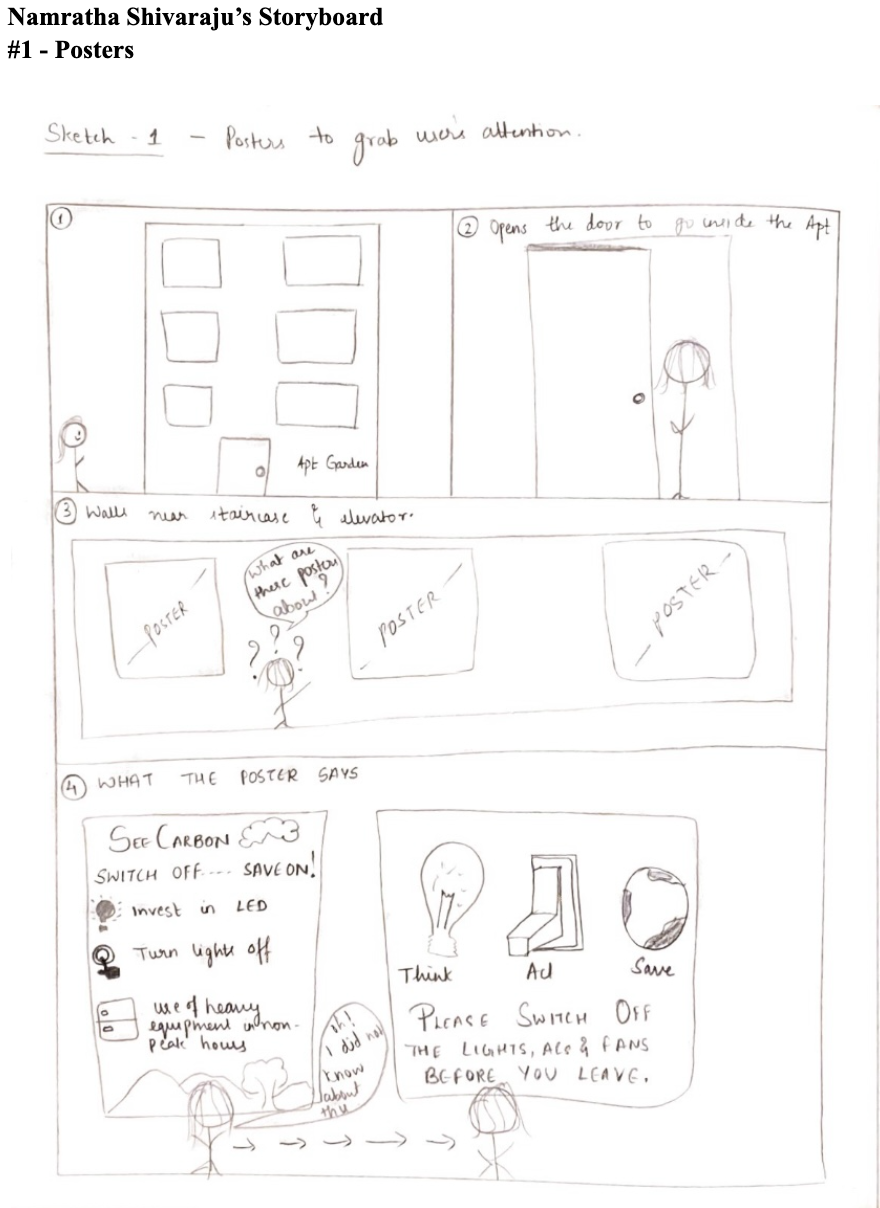 Namratha Shivaraju’s Storyboard
#1 - Posters
Sketch - 1 - Posters to grab user's attention.
1
2 Opens the door to go inside the Apt
Apt Garden
3 Walls near staircase & elevator.
What are
these posters
about?
POSTER
POSTER
POSTER
? ? ?
4 WHAT THE POSTER SAYS
SEE CARBON
SWITCH OFF.... SAVE ON!
Invest in LED
Turn lights off
use of heavy
equipment in non-
peak hours
oh!
I did not
know
about
this
Think
Act
Save
PLEASE SWITCH OFF
THE LIGHTS, ACs & FANS
BEFORE YOU LEAVE.